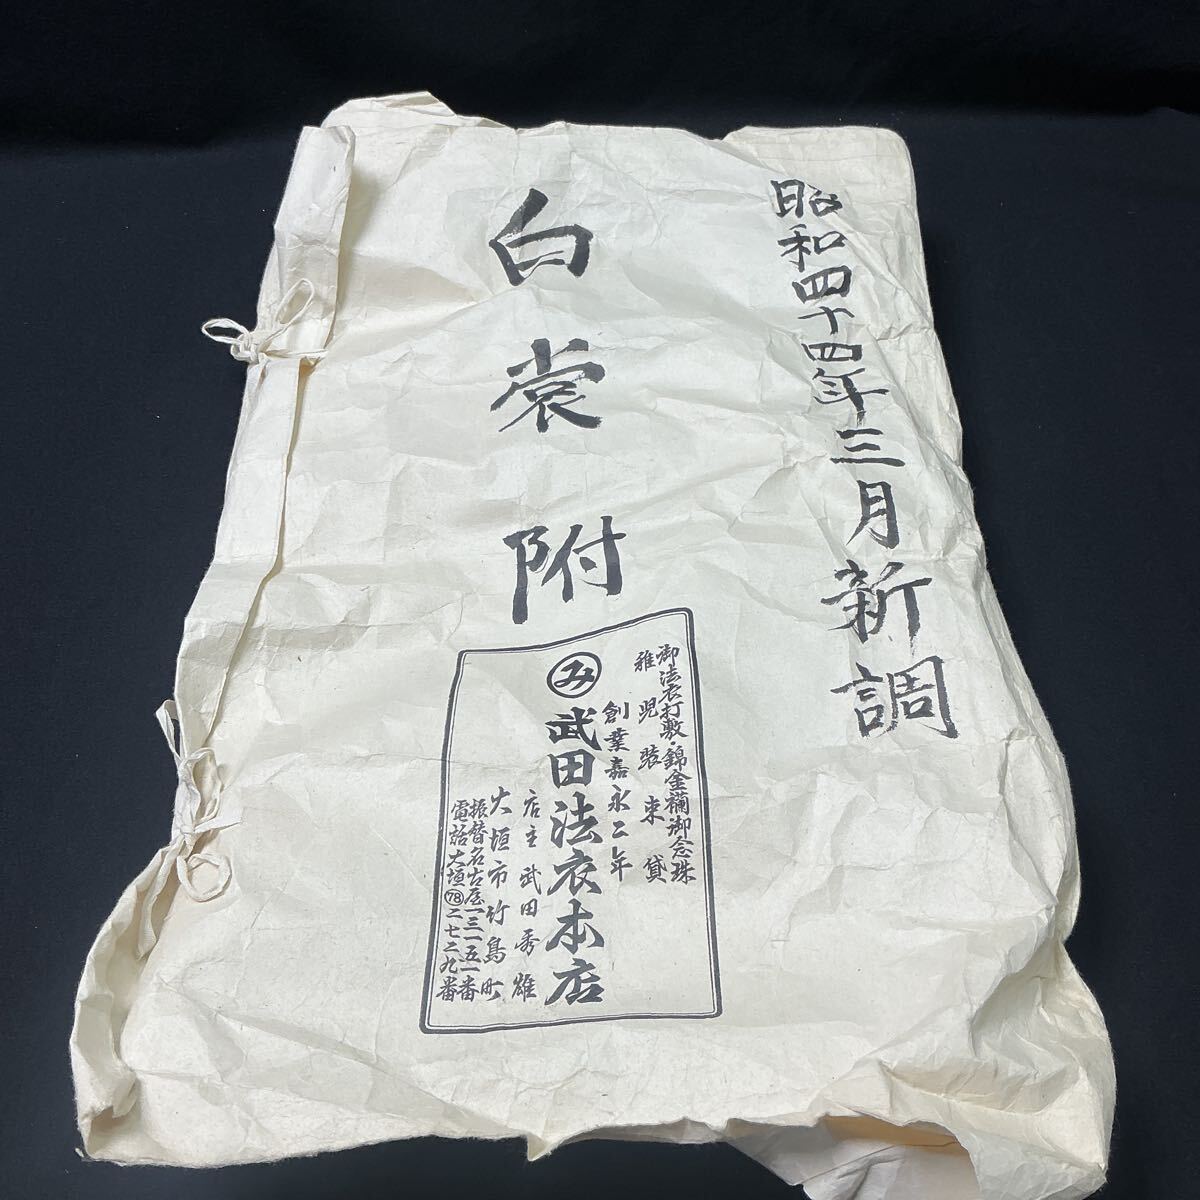 昭和四十四年三月新調
白裳附
御法衣打敷・錦金襴御念珠
雅児装束貸
創業嘉永二年
み 武田法衣本店
店主 武田秀雄
大垣市竹島町
振替名古屋一三一五一番
電話大垣78二七二九番